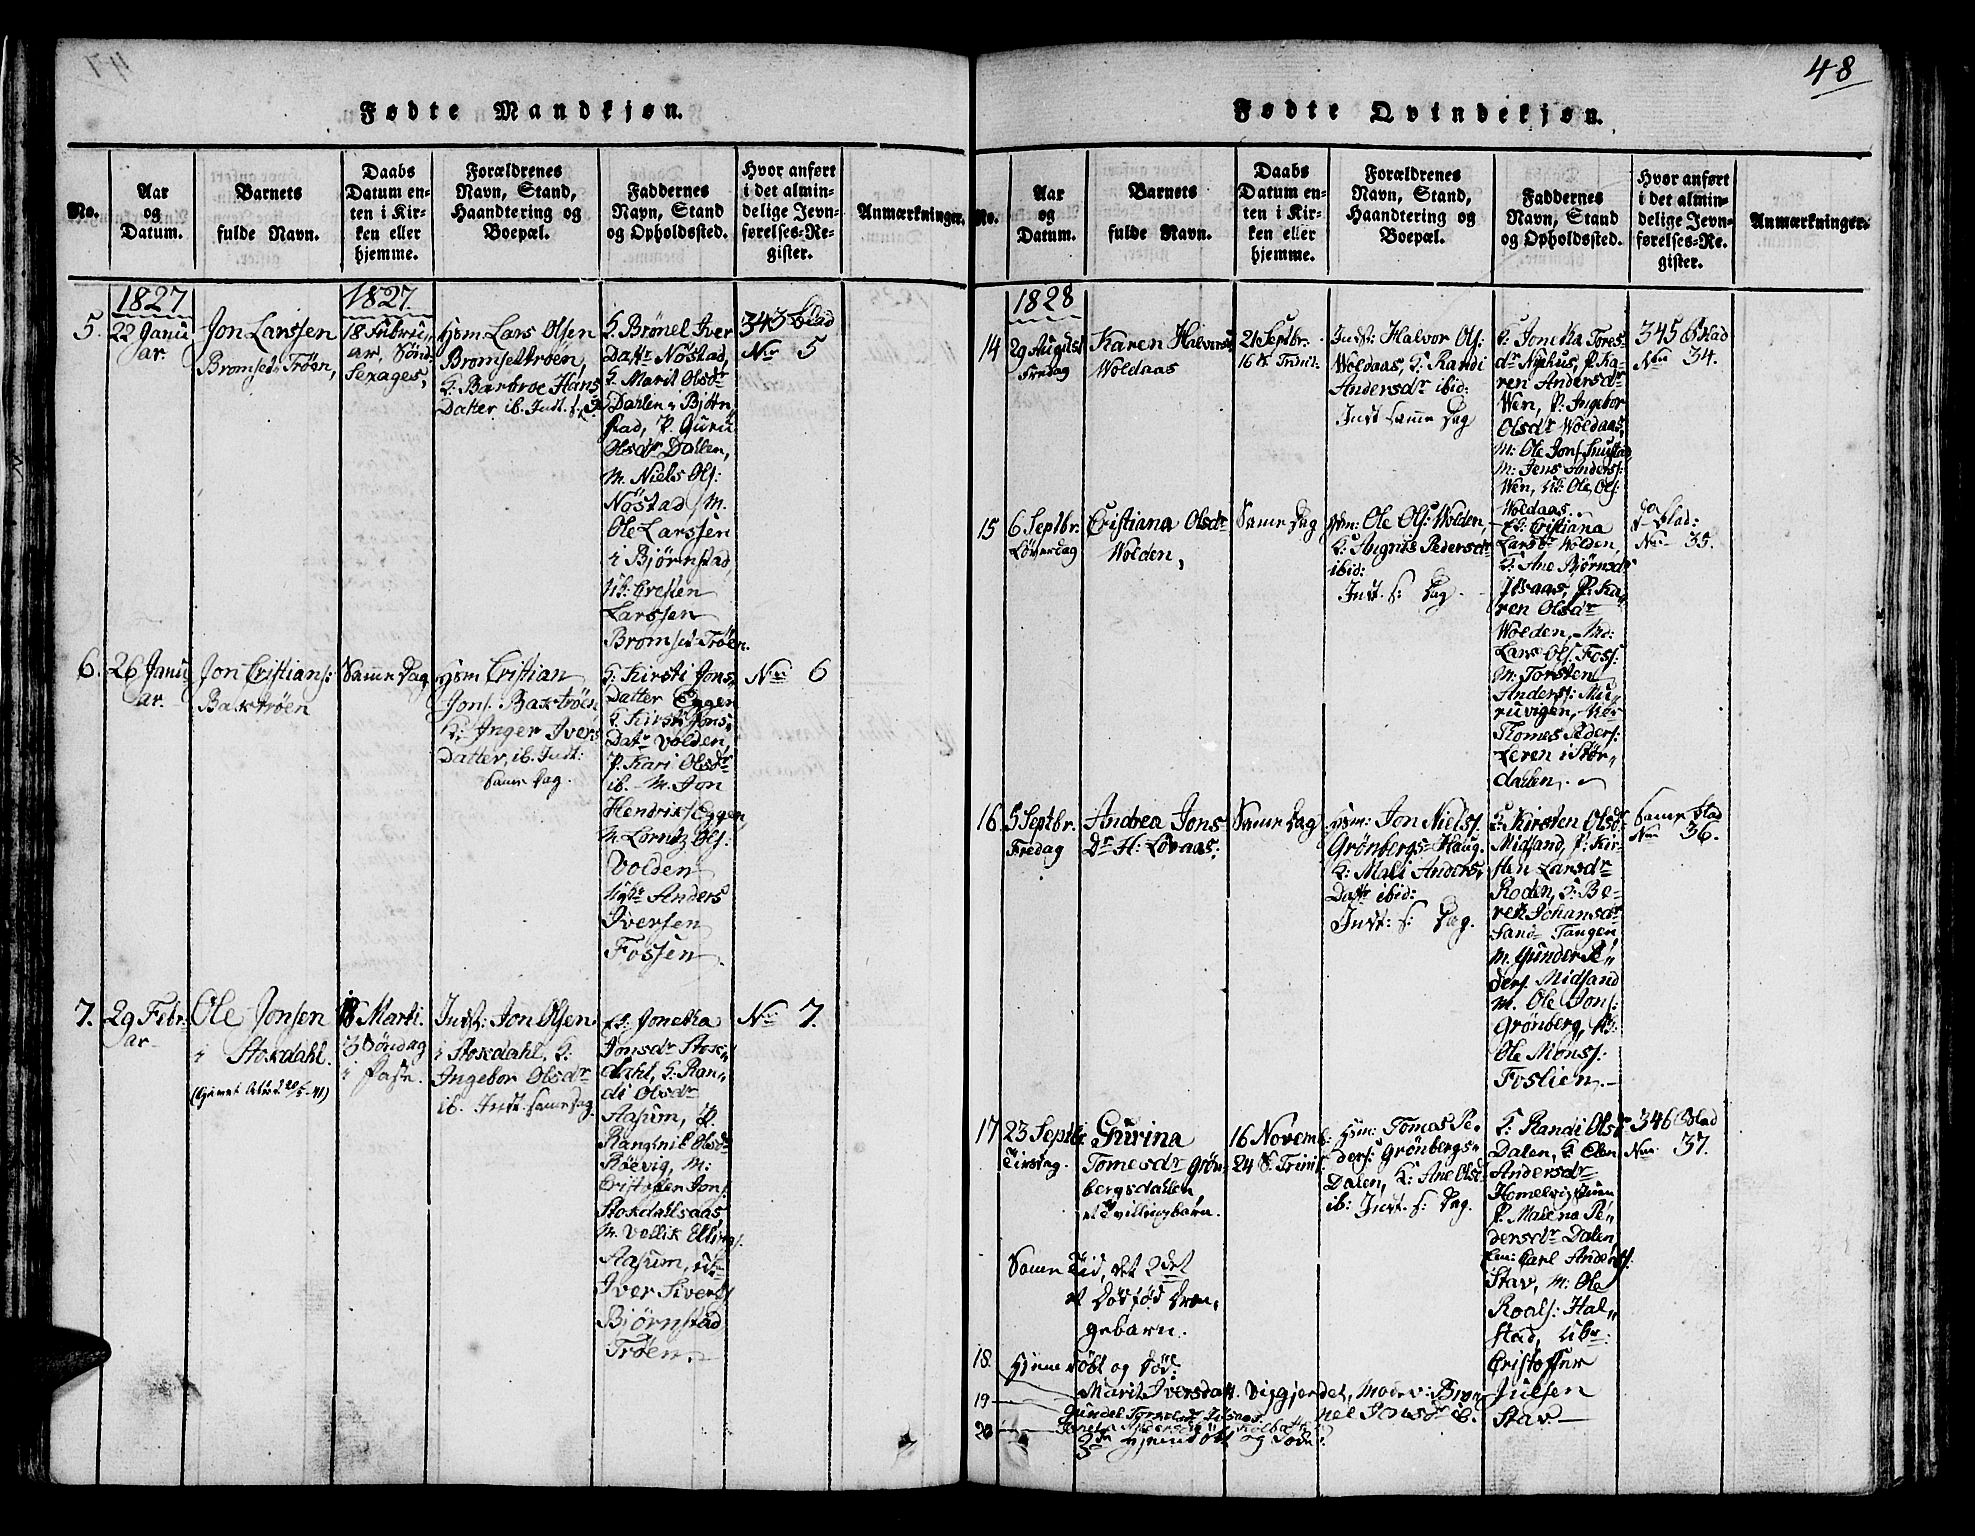 48
Fødte Mandkjøn.
No.
Aar
og
Datum.
Barnets
fulde Navn.
Daabs
Datum en-
ten i Kir-
ken eller
hjemme.
Forældrenes
Navn, Stand,
Haandtering og
Boepæl.
Faddernes
Navn, Stand
og Opholdssted.
Hvor anført
i det almin-
delige Jevn-
førelses-Re-
gister.
Anmærkninger.
1827
1827.
5.
22 Janu
ar.
Jon Larssen
Bromseds Trøen,
18 Februu
ar, Sønd:
Sexages,
Hsm Lars Olsen
Bromsettrøen,
K: Barbroe Hans
Datter ib. Int. s:
K. Brønel Iver
Datr Nøstad,
K. Marit Olsdr
Dahlen i Biørn
stad, P. Guru
Olsdr Dahlen,
M. Niels Ols:
Nøstad, M.
Ole Larssen
i Bjørnstad,
Larssen
Bromset Trøen
343 Blad
No 5
6.
26 Janu
ar.
Jon Cristians:
Baktrøen
Samme Dag
Hsm Cristian
Jons. Baktrøen
K: Inger Ivers
Datter, ib. Int:
Same Dag.
K. Kirsti Jons
Datter Eggen
K. Kirsti Jons,
Datr Volden,
P. Kari Olsdr
ib. M. Jon
Hendriks. Eggen,
M. Lorntz Ols:
Volden
Anders
Iversen
Fossen
No 6
7.
29 Febr:
ar
Ole Jonsen
i Stokdahl.
18 Marti.
3 Søndag
i Faste.
Int: Jon Olsen
i Stokdahl, K:
Ingebor Olsdr
ib. Int. same Dag.
Jonetha
Jonsdr Stok
dahl, K: Ran
di Olsdr
Aasum, P.
Rangnil Olsdr
Røevig, M:
Cristofer Jons.
Stokdahlsaas
M. Vellik Ellings.
Aasum,
Iver Sivers.
Bjørnstad
Trøen.
No 7.
Fødte Qvindekjøn.
No.
Aar
og
Datum.
Barnets
fulde Navn.
Daabs
Datum en-
ten i Kir-
ken eller
hjemme.
Forældrenes
Navn, Stand,
Haandtering og
Boepæl.
Faddernes
Navn, Stand
og Opholdssted.
Hvor anført
i det almin-
delige Jevn-
førelses-Re-
gister.
Anmærkninger.
1828
14
29 August
Fredag
Karen Halvorsd
Woldaas
21 Septbr.
16 S. Trinit.
Int: Halvor Ols:
Woldaas, K: Randi
Andersdr ibid:
Int samme Dag
K: Jonetha Tores
dr Nyehus, P. Ka-
ren Andersdr
Wen, P. Ingebor
Olsdr Woldaas,
M: Ole Jons.
M: Jens Anders:
Wen, Ole Ols:
Woldaas.
345 Blad
No 34.
15
6 Septbr.
Løverdag
Cristiana Olsdr
Wolden,
Same Dag
Hsm: Ole Ols: Wolden,
K: Pedersdr
ibid:
Int. s: Dag.
Cristiana
Larsdr Wolden,
K: Ane Bjørnsdr
P: Ka-
ren Olsdr
Wolden,
Lars Ols. Foss:
M: Torsten
Anders:
Thomes Peders:
i Stør-
dahlen.
Blad:
No 35.
16
5 Septbr.
Fredag
Andrea Jons
Dr H: Lovaas;
Same Dag
Hsm: Jon Niels:
Grønbergs Haug.
K: Mali Anders,
Datr ibid:
Int: s: Dag.
K: Kirsten Olsdr
Midsand, P: Kir-
sten Larsdr
Roden, K: Be-
ret Johansdr
Sand Tangen
M. Gunder Pe-
ders. Midsand
M. Ole Jons:
Grønberg,
Ole Mons:
Foslien.
Same Blad
No 36.
17
23 Septbr
Tirsdag.
Gurina
Tomesdr Grøn-
bergsdahlen,
et Tvillingbarn.
16 Novemb:
24 S. Trinit.
Hsm: Tomas Pe-
ders: Grønbergs-
Dalen, K: Ane Olsd
ib: Int. s: Dag.
K. Randi Olsdr
Dalen, K: Elen
Andersdr
P. Malena Pe-
dersdr Dalen,
Carl Anders:
Stav, M: Ole
Roals: Hal-
stad,
Cristoffer
Julsen
Stav
346 Blad
No 37.
Same Tid, det 2det
et Dødfød Dren,
gebarn.
18.
Hjemedøbt og Død.
19
Marit Iversdatt. Viggjerdet, Moder: Brøn
nel Jensdr ib.
20
Hjemdøbt og Døde.